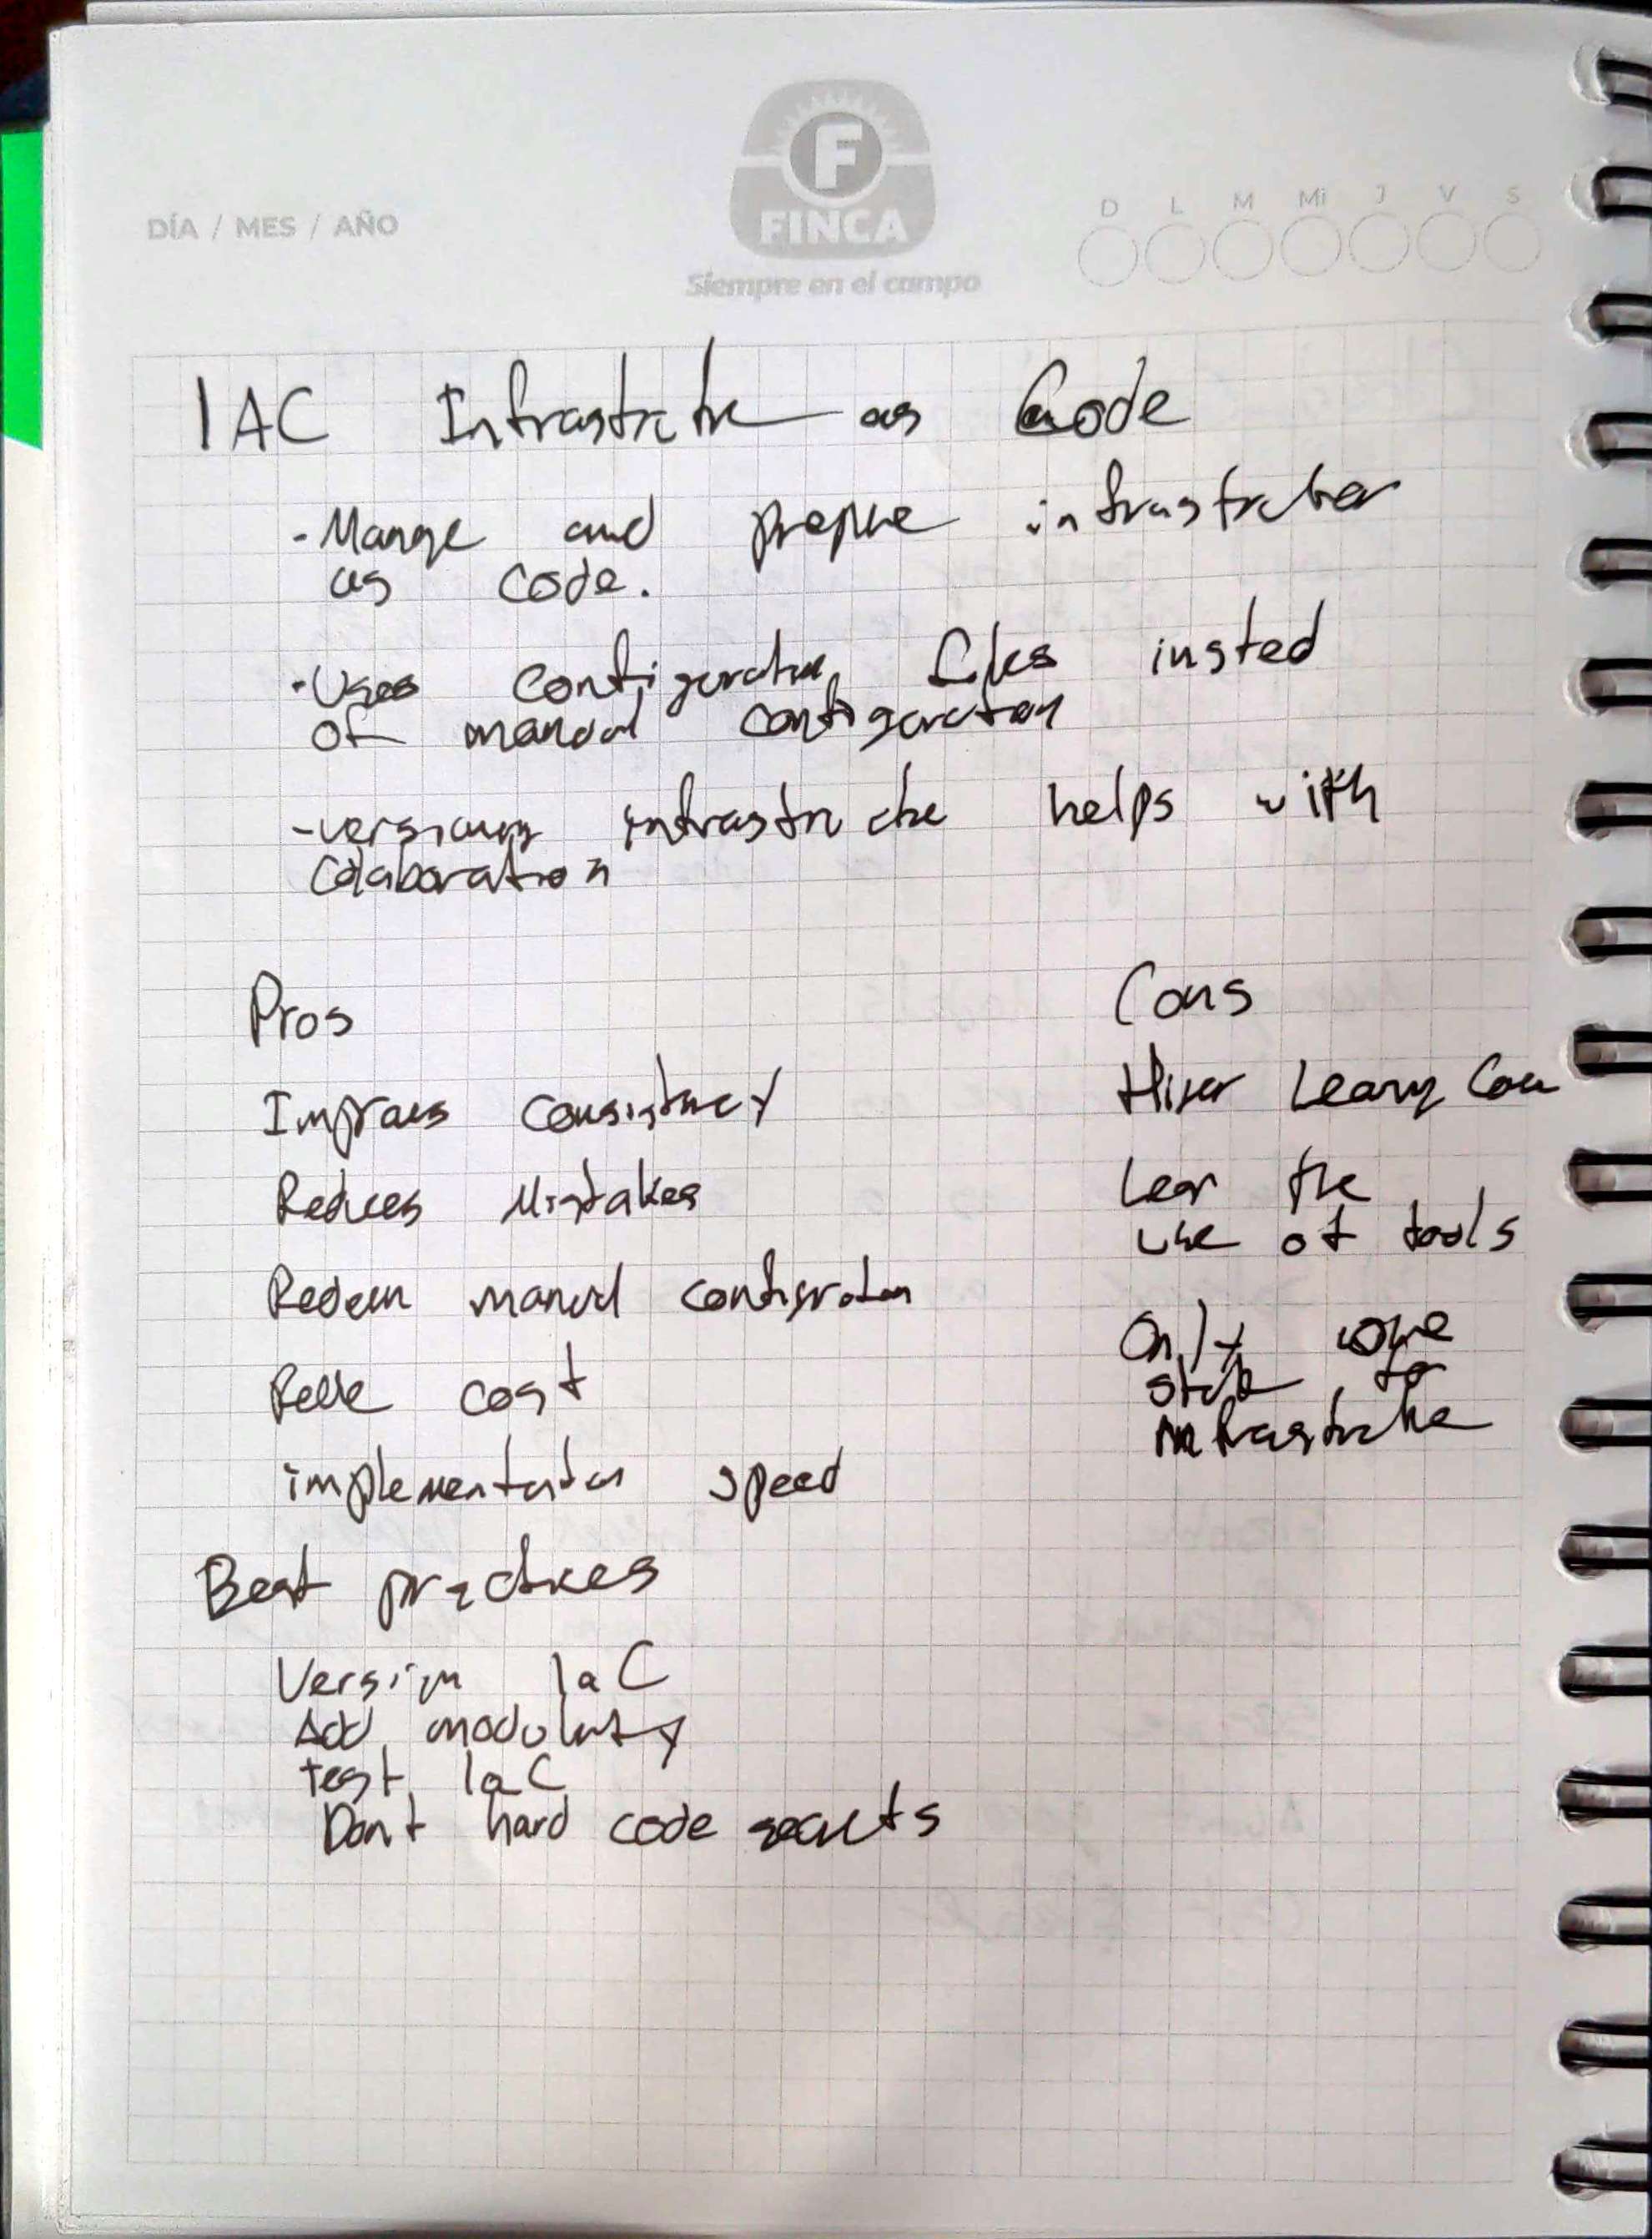 DÍA / MES / AÑO
F
FINCA
Siempre en el campo
D L M Mi J V S
IAC Infrastructure as Code
- Manage and prepare infrastructure
as code.
- Uses configuration files insted
of manual configuration
- versioning infrastructure helps with
Colaboration
Pros
Improves consistency
Reduces Mistakes
manual configuration
cost
implementation speed
Cons
Higher Learning
Learn the
use of tools
Only
state
infrastructure
Best practices
Version IaC
Add modularity
test IaC
Dont hard code secrets